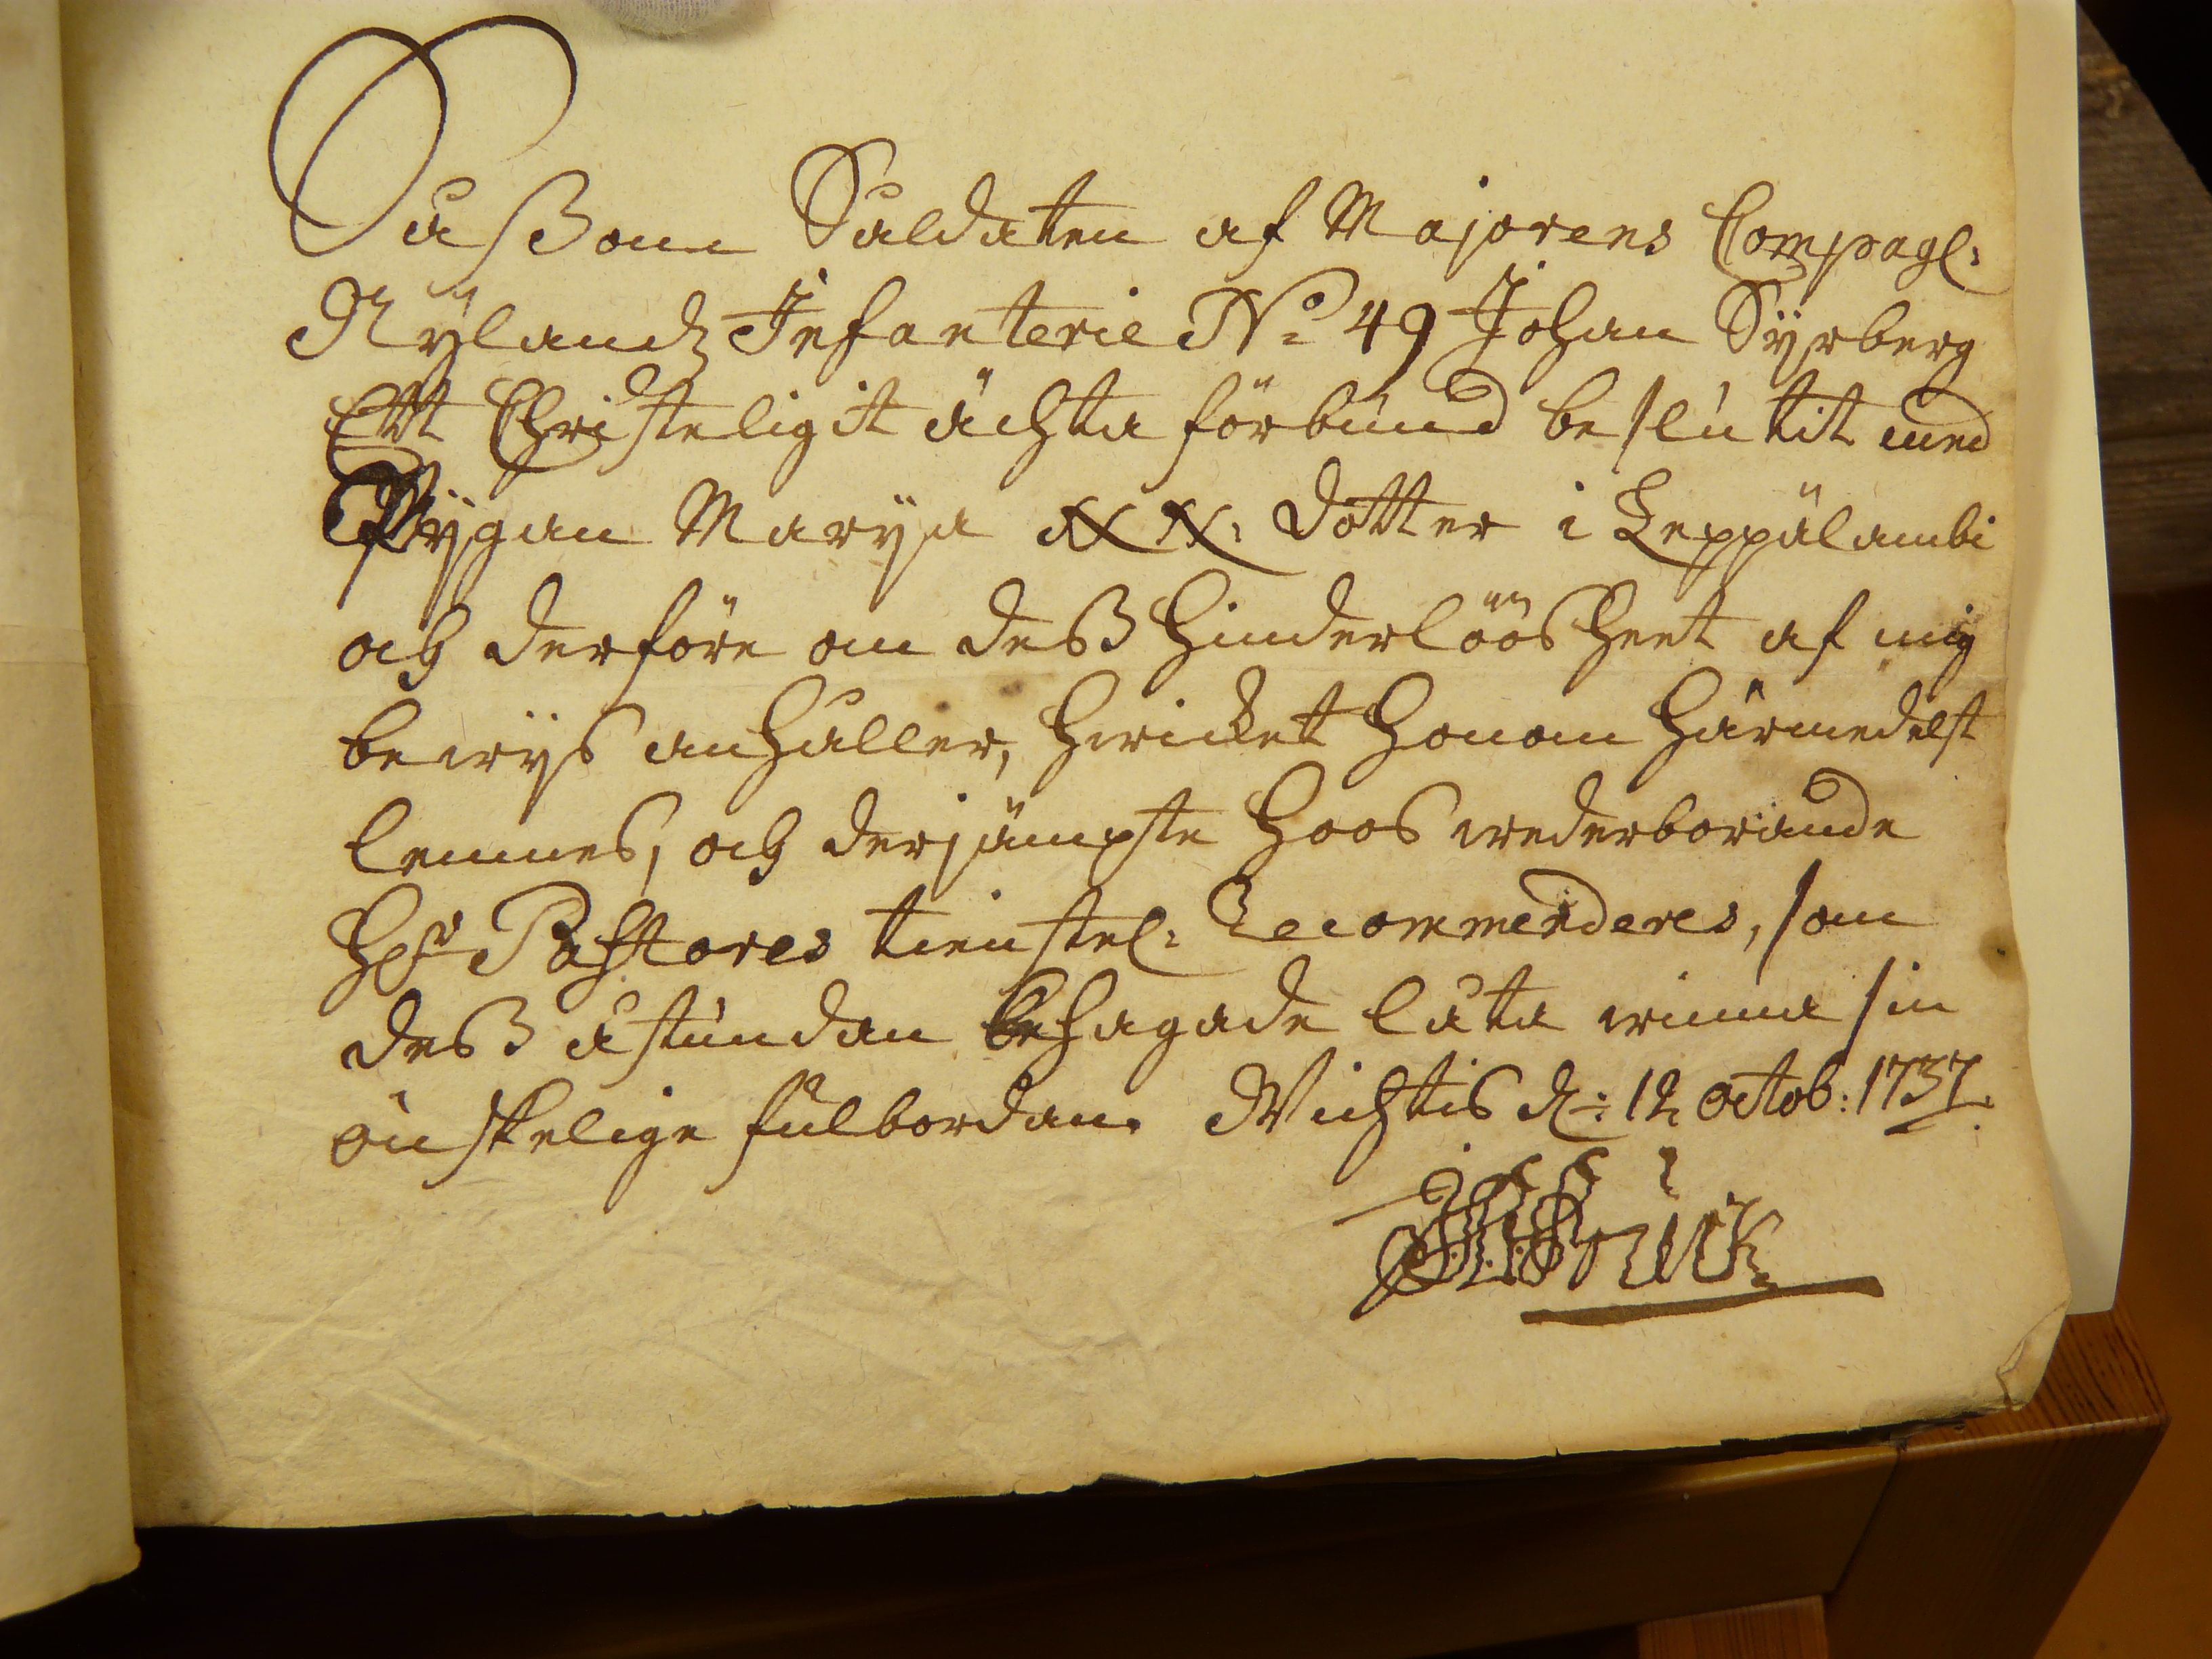 Såssom Saldaten af Majorens Compagl:
Nÿlandz Infanterie No: 49 Johan Sÿrberg
Ett Christeligit ächta förbund beslutit med
Pÿgan Marÿa NN: dotter i Leppälambi
och derföre om dess hinderlöösheet af mig
bewÿs anhåller, hwicket honom härmedelst
lemnes, och derjämpste hoos wederborande
Hr Pastores tienstel: Recommenderes, som
dess åstundan behagade låta winna sin
önskelige fulbordan. Wichtis d: 12 octob: 1737.